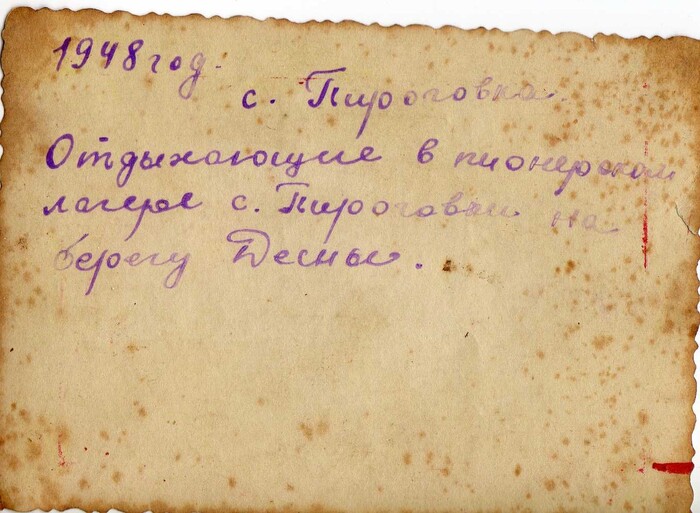 1948 год.
с. Пироговка
Отдыхающие в пионерском
лагере с. Пироговки на
берегу Десны.